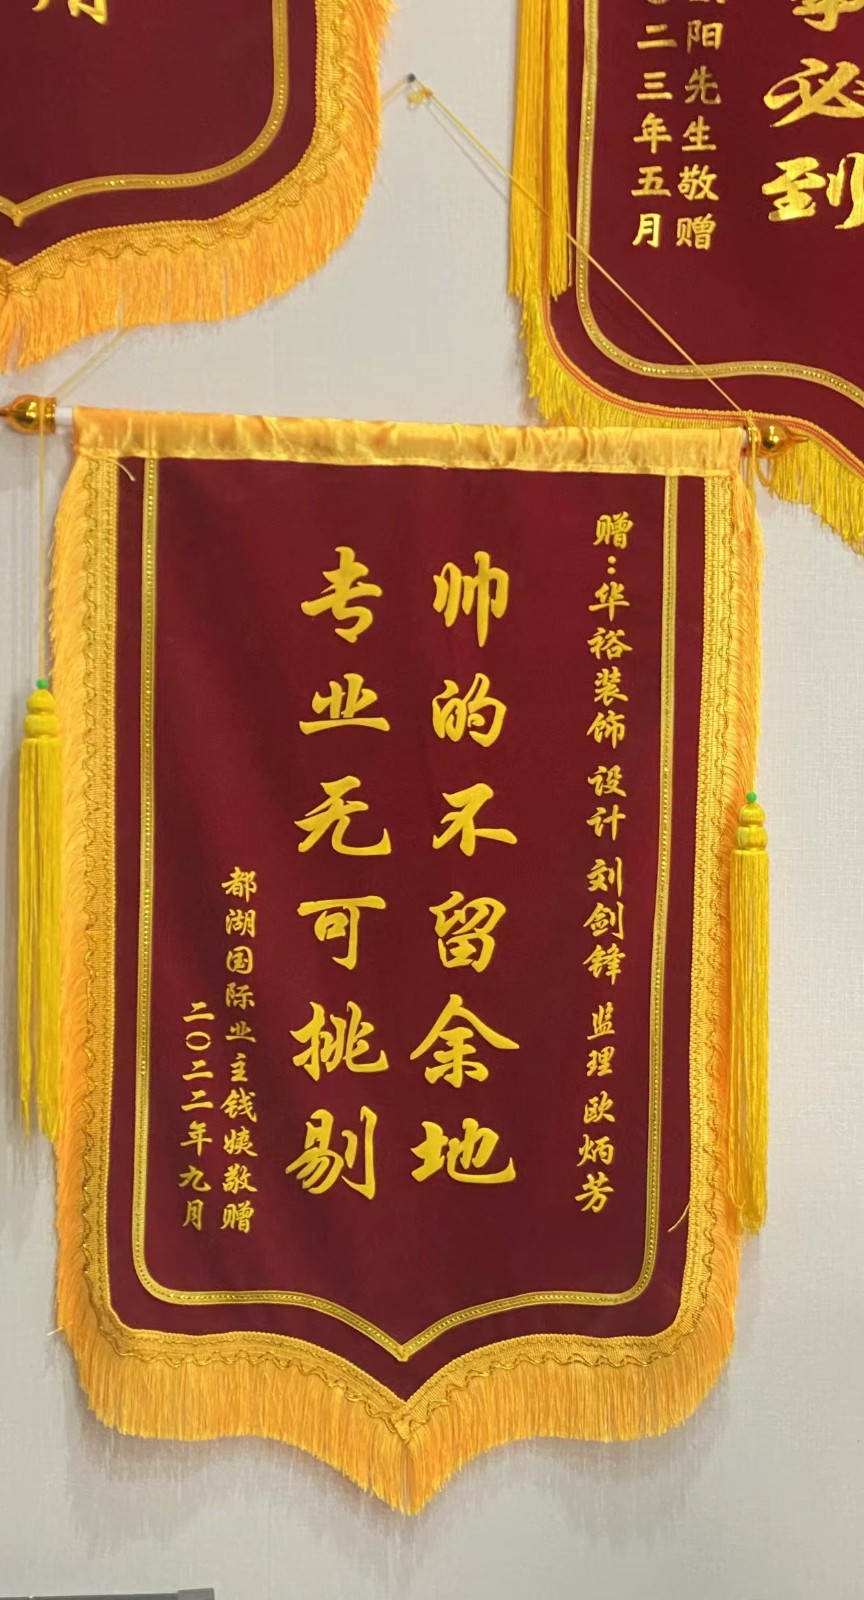 赠：华裕装饰 设计 刘剑锋 监理 欧炳芳
帅的不留余地
专业无可挑剔
都湖国际业主钱姨敬赠
二〇二二年九月
必到
阳先生敬赠
二三年五月